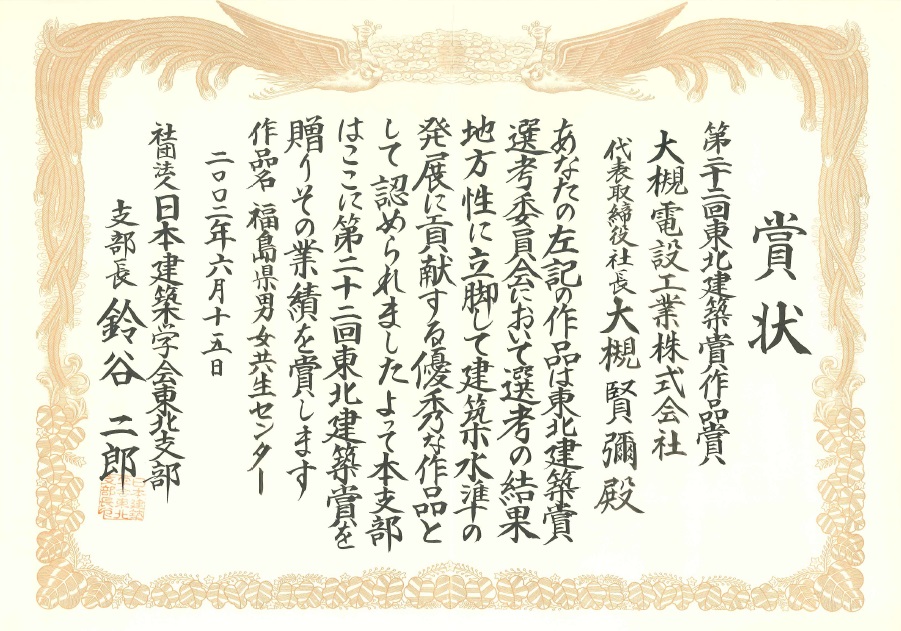 賞状
第二十二回東北建築賞作品賞
大槻電設工業株式会社
代表取締役社長大槻賢彌殿
あなたの左記の作品は東北建築賞
選考委員会において選考の結果
地方性に立脚して建築水準の
発展に貢献する優秀な作品と
して認められましたよって本支部
はここに第二十二回東北建築賞を
贈りその業績を賞します
作品名 福島県男女共生センター
二〇〇二年六月十五日
社団法人日本建築学会東北支部
支部長 鈴谷二郎